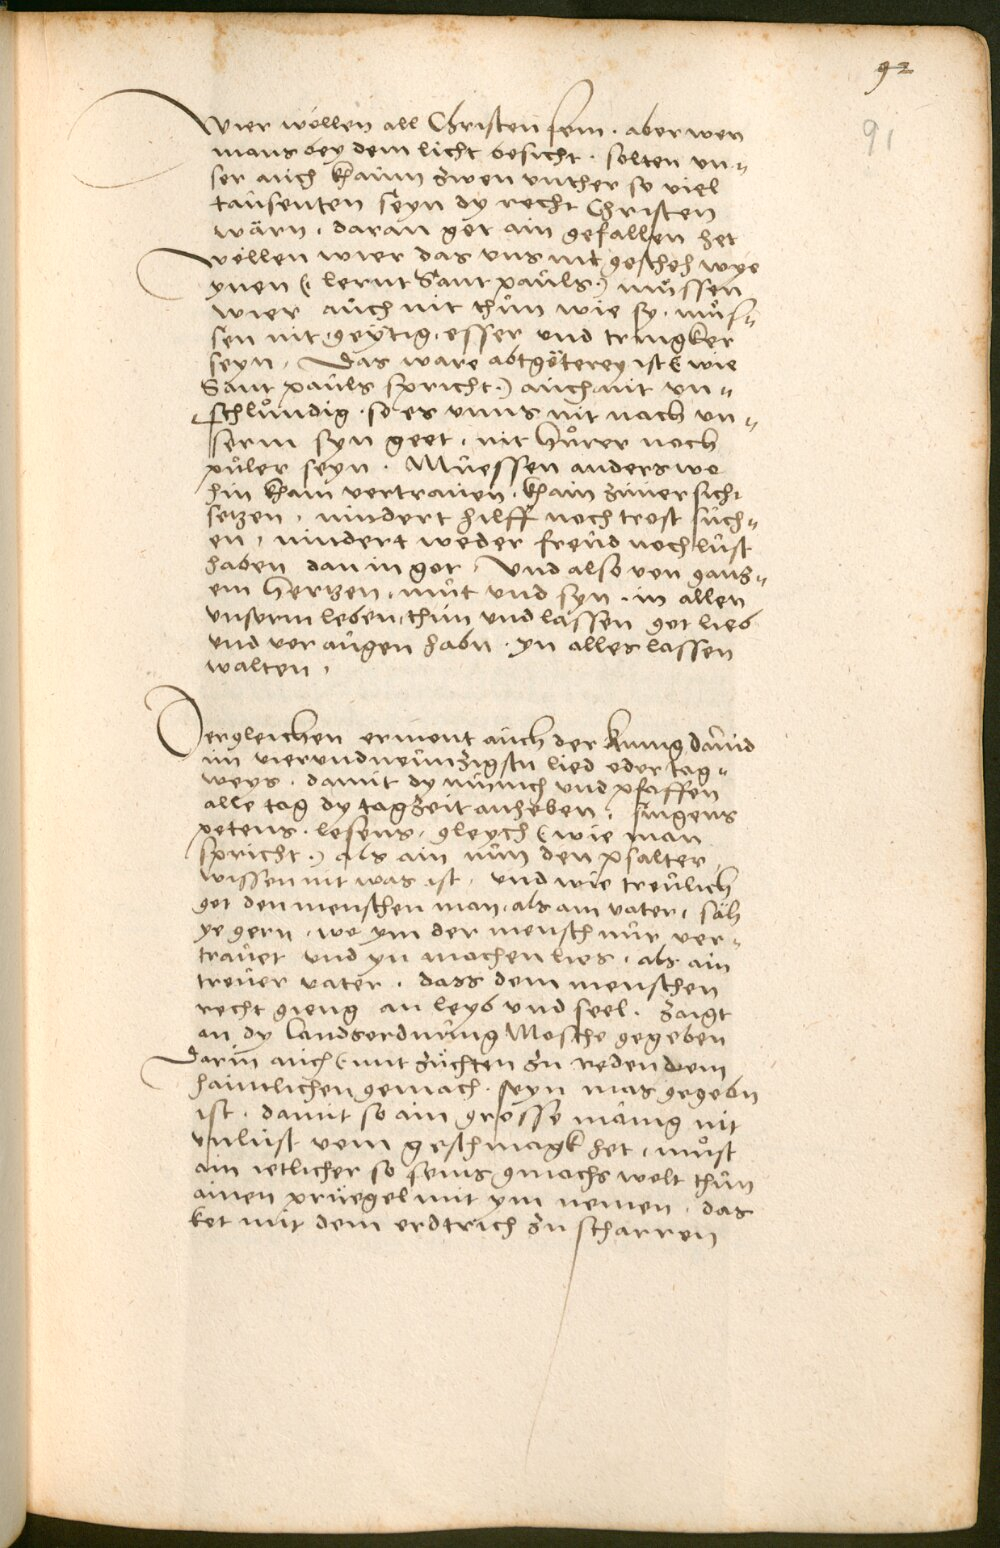 92
91
Wier wöllen all Christen sein · aber wen
mans bey dem licht besicht · solten un=
ser auch khaum zwen unther so viel
tausenten seyn dy recht Christen
wärn, daran got ain gefallen het
Wöllen wier das uns nit gescheh wye
ynen (: lernt Sant pauls :) müssen
wier auch nit thůn wie sy, můs=
sen nit geytig, esser und tringker
seyn, Das ware abtgöterey ist (: wie
Sant pauls spricht :) auch nit un=
schlůndig · so es unns nit nach un=
serm syn geet, nit hůrer noch
půler seyn · Müessen anderswo
hin khain vertrauen, khain zuuersicht
setzen, nindert hilff noch trost such=
en, nindert weder freud noch lust
haben dan in got, Und also von gantz=
em hertzen, můt und syn, in allen
unserm leben, thun und lassen got lieb
und vor augen habn · yn alles lassen
walten,
Dergleichen ermont auch der kunig dauid
im vierundneunzigsten lied oder tag=
weys, damit dy münich und pfaffen
alle tag dy tagzeit anheben, singens
petens, lesens, gleych (: wie man
spricht :) als ain nun den psalter,
wissen nit was ist, und wie treulich
got den menschen man, als ain vater, säh
ye gern, wo ym der mensch nur ver=
trauet und yn machen lies, als ain
treuer vater, dass dem menschen
recht gieng an leyb und seel, zaigt
an dy landsordnung Mosche gegeben
Darin auch (: mit züchten zu reden dem
haimlichen gemach, seyn mas gegebn
ist, damit so ain grosse mänig nit
unlust vom geschmagk het, můst
ain ietlicher so seins gmachs wolt thun
ainen prüegel mit ym nemen, das
kot mit dem erdtrich zu scharren